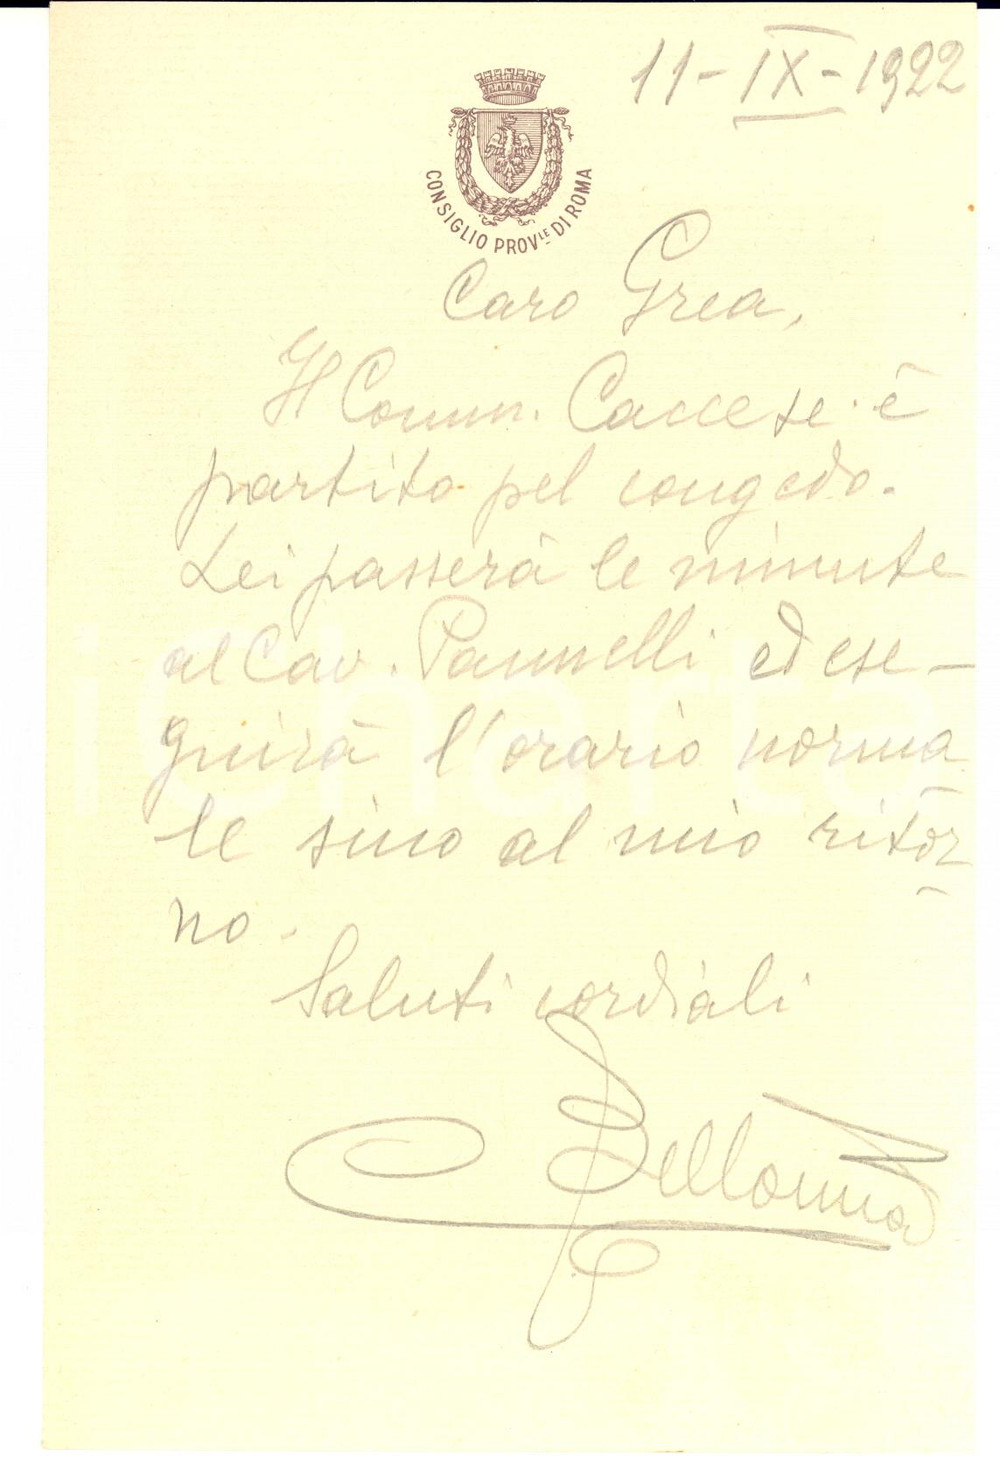 11-IX-1922
CONSIGLIO PROVLE DI ROMA
Caro Grea,
Il Comm. Caccese è
partito pel congedo.
Lei passerà le minute
al Cav. Pannelli ed ese-
guirà l'orario norma
le sino al mio ritor
no.
Saluti cordiali
Bellonna